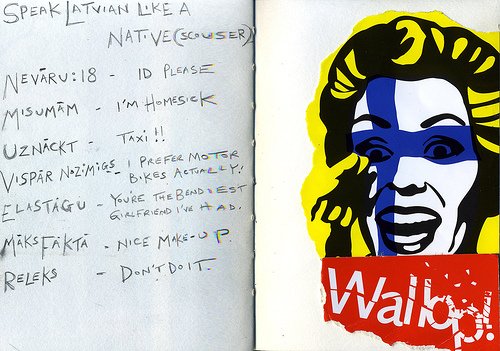 SPEAK LATVIAN LIKE A
NATIVE (SCOUSER)
NEVĀRU:18 - ID PLEASE
MISUMĀM - I'M HOMESICK
UZNĀCKT - TAXI!!
VISPĀR NOZIMIGS - I PREFER MOTOR
BIKES ACTUALLY!
ELASTĀGU - YOU'RE THE BENDIEST
GIRLFRIEND I'VE HAD.
MĀKSFĀKTĀ - NICE MAKE-UP.
RELEKS - DON'T DO IT.
Wallop!